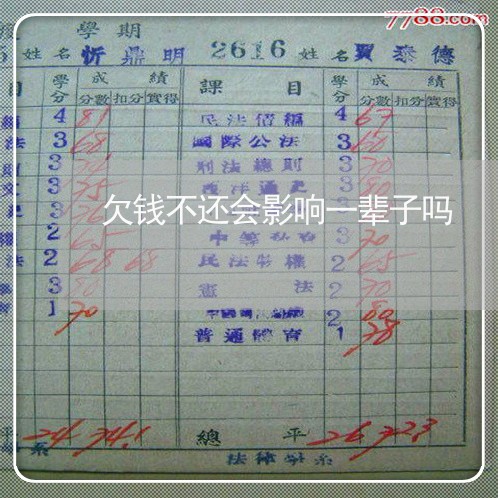 7788.com
學期
5 姓名 忻鼎明 2616 姓名 賈泰德
目 學分 成績 課目 學分 成績
分數 扣分 實得 分數 扣分 實得
4 81 民法債編 4 67
法 3 68 國際公法 3 60
3 刑法總則 3 70
文 3 75 西洋通史 3 80
3
欠钱不还会影响一辈子吗
2 65 3 70
法 2 68 68 民法物權 2 65
3 80 憲法 2 70
育 1 70 2 80
普通體育 1 78
平 24 74.1 總平 26 72.3
系 法律學系